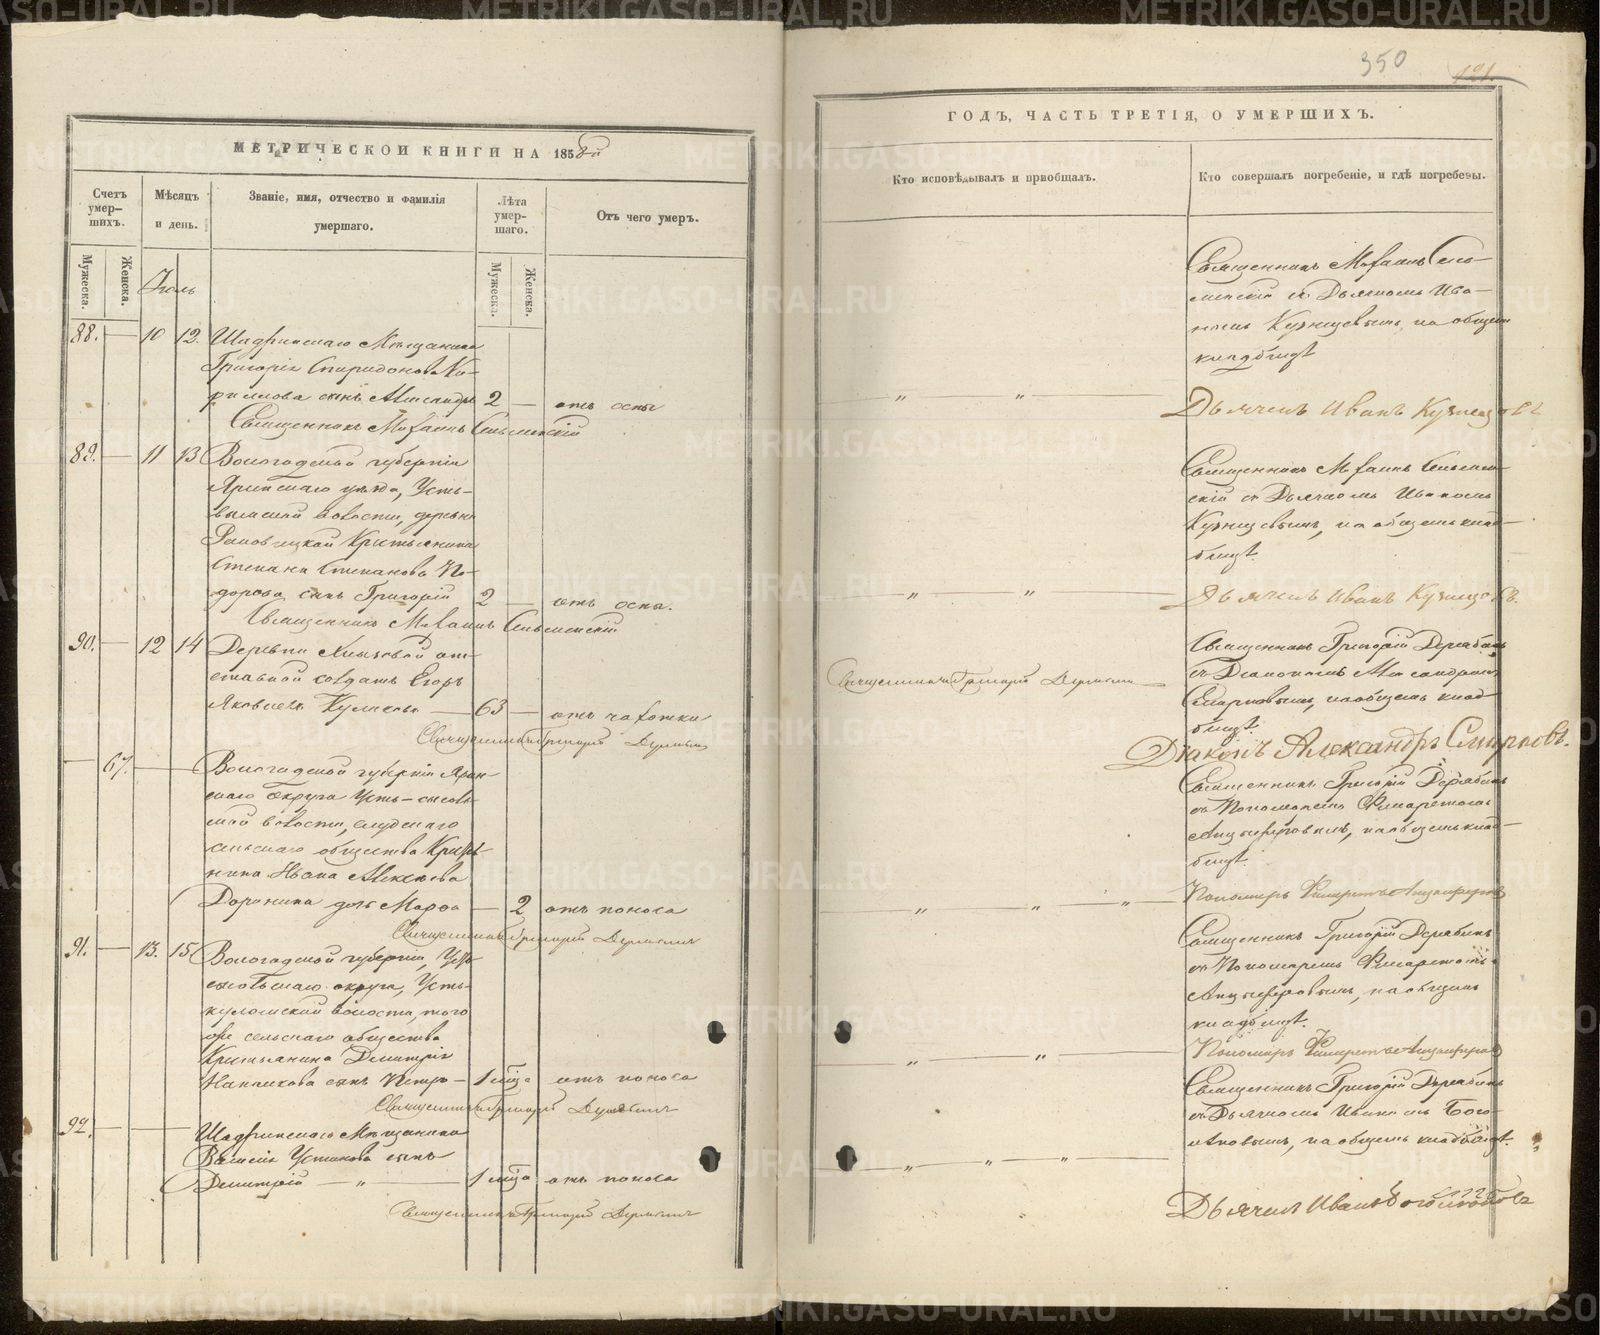 350
121.
МЕТРИЧЕСКОЙ КНИГИ НА 1858й
ГОДЪ, ЧАСТЬ ТРЕТІЯ, О УМЕРШИХЪ.
Счетъ умер-шихъ.
Мужеска.
Женска.
Мѣсяцъ и день.
Званіе, имя, отчество и фамилія умершаго.
Лѣта умер-шаго.
Мужеска.
Женска.
Отъ чего умеръ.
Кто исповѣдывалъ и пріобщалъ.
Кто совершалъ погребеніе, и гдѣ погребены.
Іюль
88. 10 12. Шадринскаго Мѣщанина
Григорія Спиридонова Ки-
рилова сынъ Александръ 2 — отъ оспы
Священникъ Михаилъ
Священникъ Михаилъ
съ Дьячкомъ Ива-
номъ Кузнецовымъ, на общемъ
кладбищѣ
Дьячекъ Иванъ Кузнецовъ
89. 11 13 Вологодской губерніи
Яренскаго уѣзда, Усть-
вымской волости, деревни
Крестьянина
Степана Степанова По-
дорова сынъ Григорій 2 — отъ оспы.
Священникъ Михаилъ
Священникъ Михаилъ
скій съ Дьячкомъ Иваномъ
Кузнецовымъ, на общемъ клад-
бищѣ.
Дьячекъ Иванъ Кузнецовъ.
90. 12 14 Деревни от-
ставной солдатъ Егоръ
Яковлевъ Куликовъ — 63 — отъ чахотки
Священникъ Григорій Дерябинъ
Священникъ Григорій Дерябинъ
Священникъ Григорій Дерябинъ
съ Діакономъ Александромъ
Смирновымъ, на общемъ клад-
бищѣ.
Діаконъ Александръ Смирновъ.
67. Вологодской губерніи Ярен-
скаго Округа Усть-сысоль-
ской волости, слудскаго
сельскаго общества Кресть-
нина Ивана Алексѣева
Доронина дочь Марѳа — 2 отъ поноса
Священникъ Григорій Дерябинъ
Священникъ Григорій Дерябинъ
съ Пономаремъ Филаретомъ
Анциферовымъ, на общемъ клад-
бищѣ.
Пономарь Филаретъ Анциферовъ
91. 13. 15. Вологодской губерніи, Усть-
сысольскаго округа, Усть-
куломской волости, того
же сельскаго общества
Крестьянина Димитрія
сынъ Петръ — 1 мѣся отъ поноса
Священникъ Григорій Дерябинъ
Священникъ Григорій Дерябинъ
съ Пономаремъ Филаретомъ
Анциферовымъ, на общемъ
кладбищѣ.
Пономарь Филаретъ Анциферовъ
92. Шадринскаго Мѣщанина
Василія Устинова сынъ
Димитрій — „ — 1 мѣся отъ поноса
Священникъ Григорій Дерябинъ
Священникъ Григорій Дерябинъ
съ Дьячкомъ Иваномъ Бого-
мѣновымъ, на общемъ кладбищѣ.
Дьячекъ Иванъ